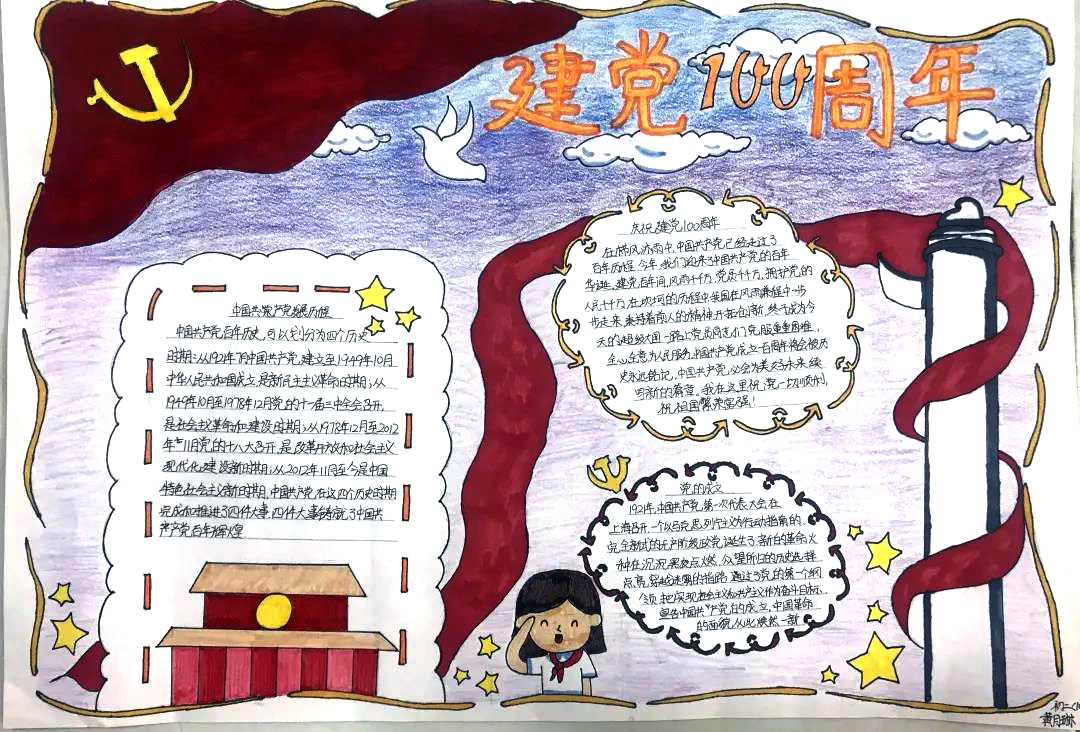 建党100周年
中国共产党发展历程
中国共产党百年历史,可以划分为四个历史
时期:从1921年7月中国共产党建立至1949年10月
中华人民共和国成立,是新民主主义革命时期;从
1949年10月至1978年12月党的十一届三中全会召开,
是社会主义革命和建设时期;从1978年12月至2012
年11月党的十八大召开,是改革开放和社会主义
现代化建设新时期;从2012年11月至今是中国
特色社会主义新时期,中国共产党在这四个历史时期
完成和推进了四件大事,四件大事铸就了中国共
产党百年辉煌
庆祝建党100周年
在栉风沐雨中,中国共产党已经走过了
百年历程,今年,我们迎来了中国共产党的百年
华诞。建党百年间,风雨千万,党员千万,拥护党的
人民千万,在坎坷的历程中我国在风雨兼程中一步
步走来,秉持着前人的精神开拓创新,终于成为今
天的超级大国一路上党员同志们克服重重困难,
全心全意为人民服务,中国共产党成立一百周年将会被历
史永远铭记,中国共产党必会为美好未来续
写新的篇章。我在这里祝党一切顺利,
祝祖国繁荣富强!
党的成立
1921年,中国共产党第一次代表大会在
上海召开,一个以马克思列宁主义为行动指南的、
完全新式的无产阶级政党诞生了,新的革命火
种在沉沉黑夜点燃,众望所归的历史选择
点亮穿越迷雾的指路,通过了党的第一个纲
领,把实现社会主义和共产主义作为奋斗目标,
宣告中国共产党的成立,中国革命
的面貌从此焕然一新
初二
黄月琳